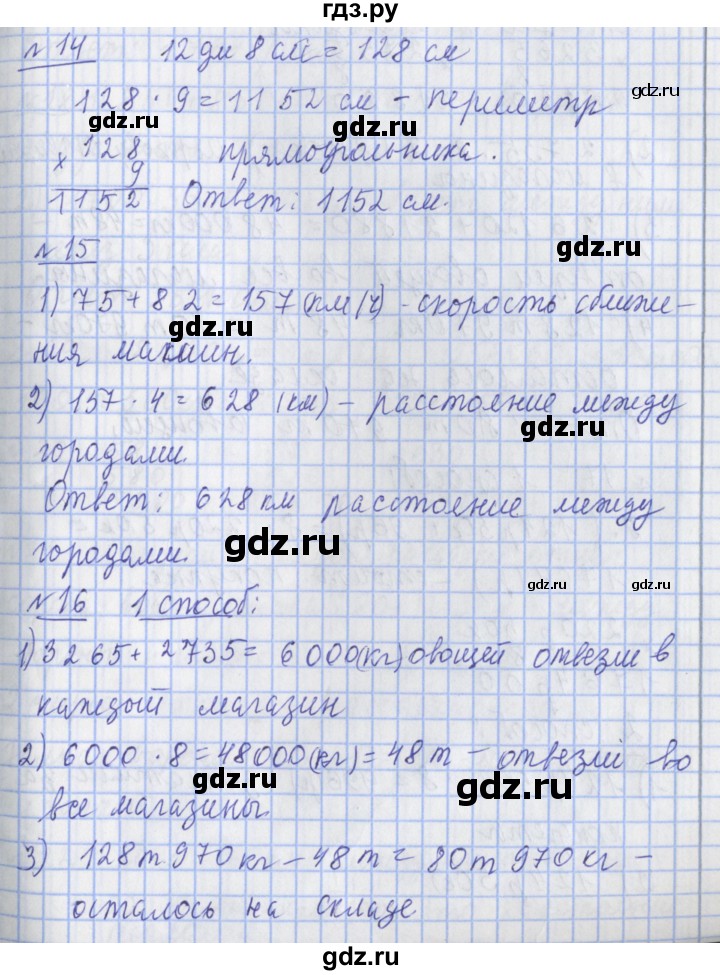 гдз.ру
№ 14 12 дм 8 см = 128 см
128 · 9 = 1152 см – периметр
gdz.ru gdz.ru
× 128 прямоугольника.
9
1152 Ответ: 1152 см.
gdz.ru
№ 15
1) 75 + 82 = 157 (км/ч) - скорость сближе-
gdz.ru
ния машин.
2) 157 · 4 = 628 (км) – расстояние между
gdz.ru
городами.
Ответ: 628 км расстояние между
gdz.ru
городами.
gdz.ru gdz.ru
№ 16 1 способ:
1) 3265 + 2735 = 6000 (кг) овощей отвезли в
каждый магазин
2) 6000 · 8 = 48000 (кг) = 48 т – отвезли во
gdz.ru gdz.ru
все магазины.
3) 128 т 970 кг – 48 т = 80 т 970 кг –
осталось на складе
gdz.ru
gdz.ru